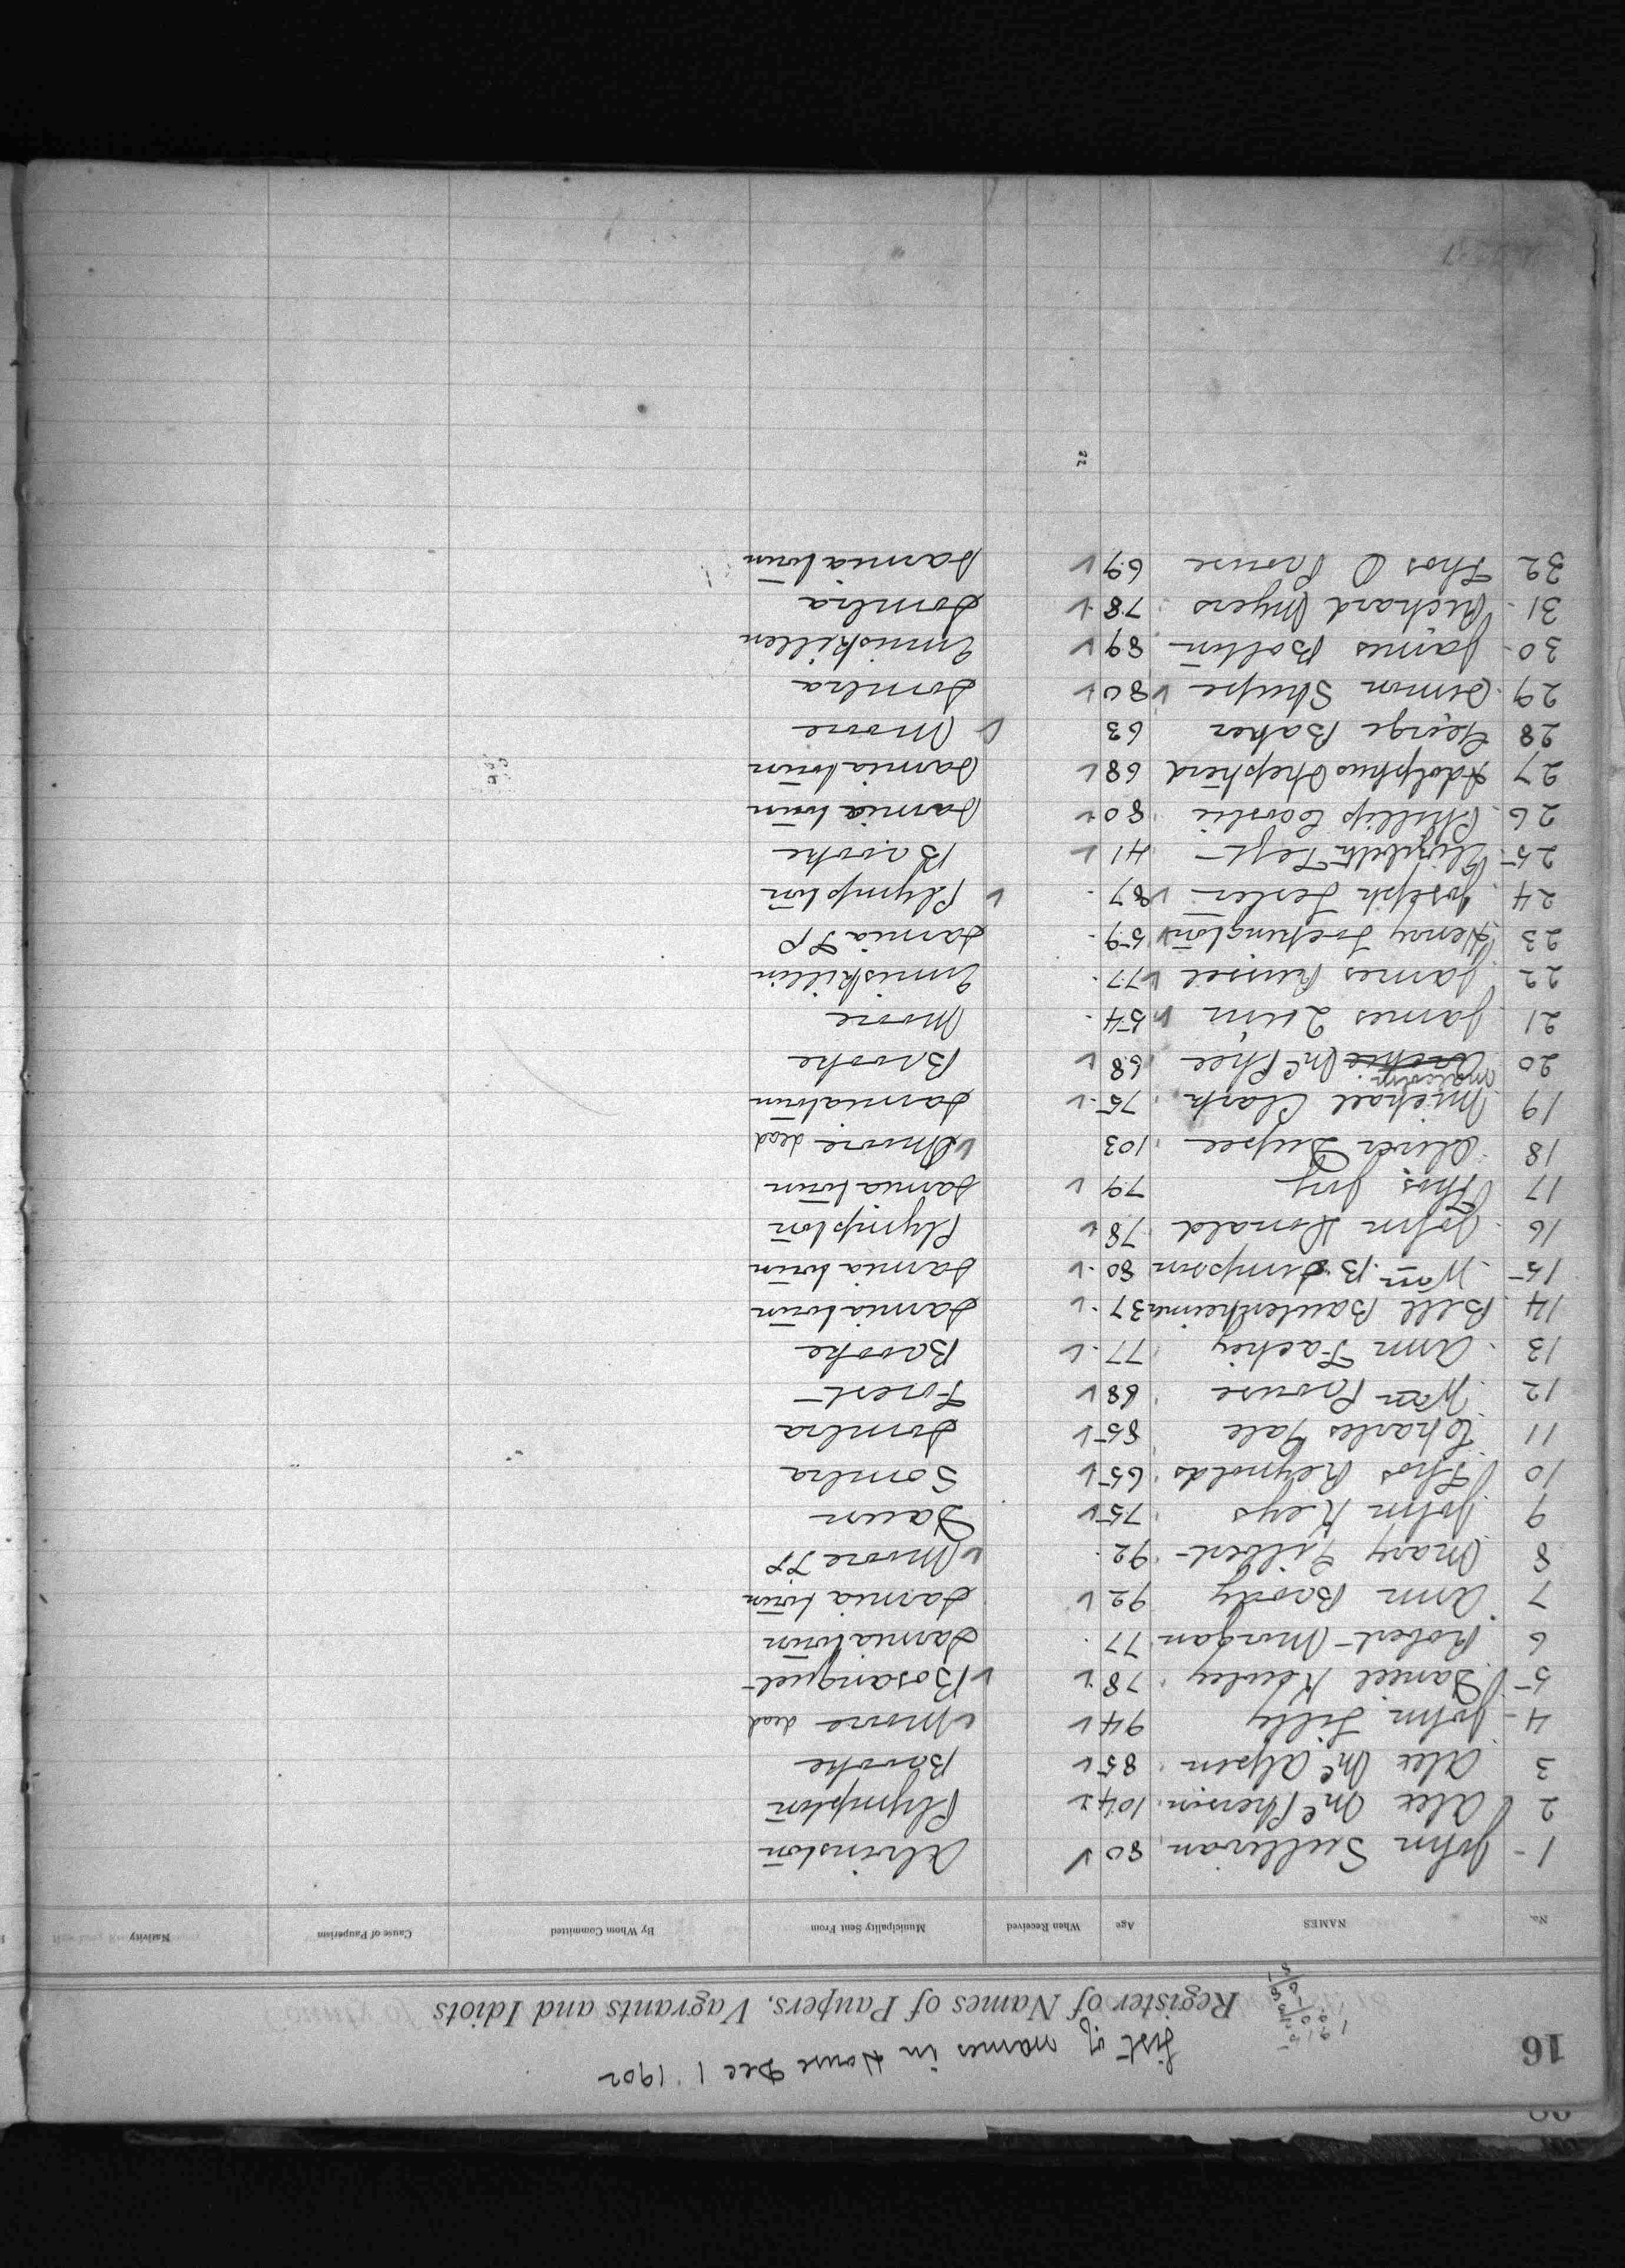 16
List of names in House Dec 1 1902
Register of Names of Paupers, Vagrants and Idiots
No. NAMES Age When Received Municipality Sent From By Whom Committed Cause of Pauperism Nativity
1 John Sullivan 80 Alvinston
2 Alex McPherson 104 Plympton
3 Alex McAlpin 85 Brooke
4 John Lilly 94 Moore dead
5 Daniel 78 Bosanquet
6 Robert Morgan 77 Sarnia town
7 Ann Brody 92 Sarnia town
8 Mary Gilbert 92 Moore TP
9 John Keys 75 Dawn
10 Thos Reynolds 65 Sombra
11 Charles Gale 85 Sombra
12 Wm Prouse 68 Forest
13 Ann Fachey 77 Brooke
14 Bell 37 Sarnia town
15 Wm B. Simpson 80 Sarnia town
16 John Donald 78 Plympton
17 Thos Joy 79 Sarnia town
18 Oliver Dupee 103 Moore dead
19 Michael Clark 75 Sarnia town
Malcolm
20 Archie McPhee 68 Brooke
21 James Quin 54 Moore
22 James Russel 77 Enniskillin
23 Henry 59 Sarnia TP
24 Joseph Lester 87 Plympton
25 Elizabeth Teft 41 Brooke
26 Phillip 80 Sarnia town
27 Adolphus Shepherd 68 Sarnia town
28 George Baker 63 Moore
29 Simon Shupe 80 Sombra
30 James Bolton 89 Enniskillen
31 Richard Myers 78 Sombra
32 Thos O Prouse 69 Sarnia town